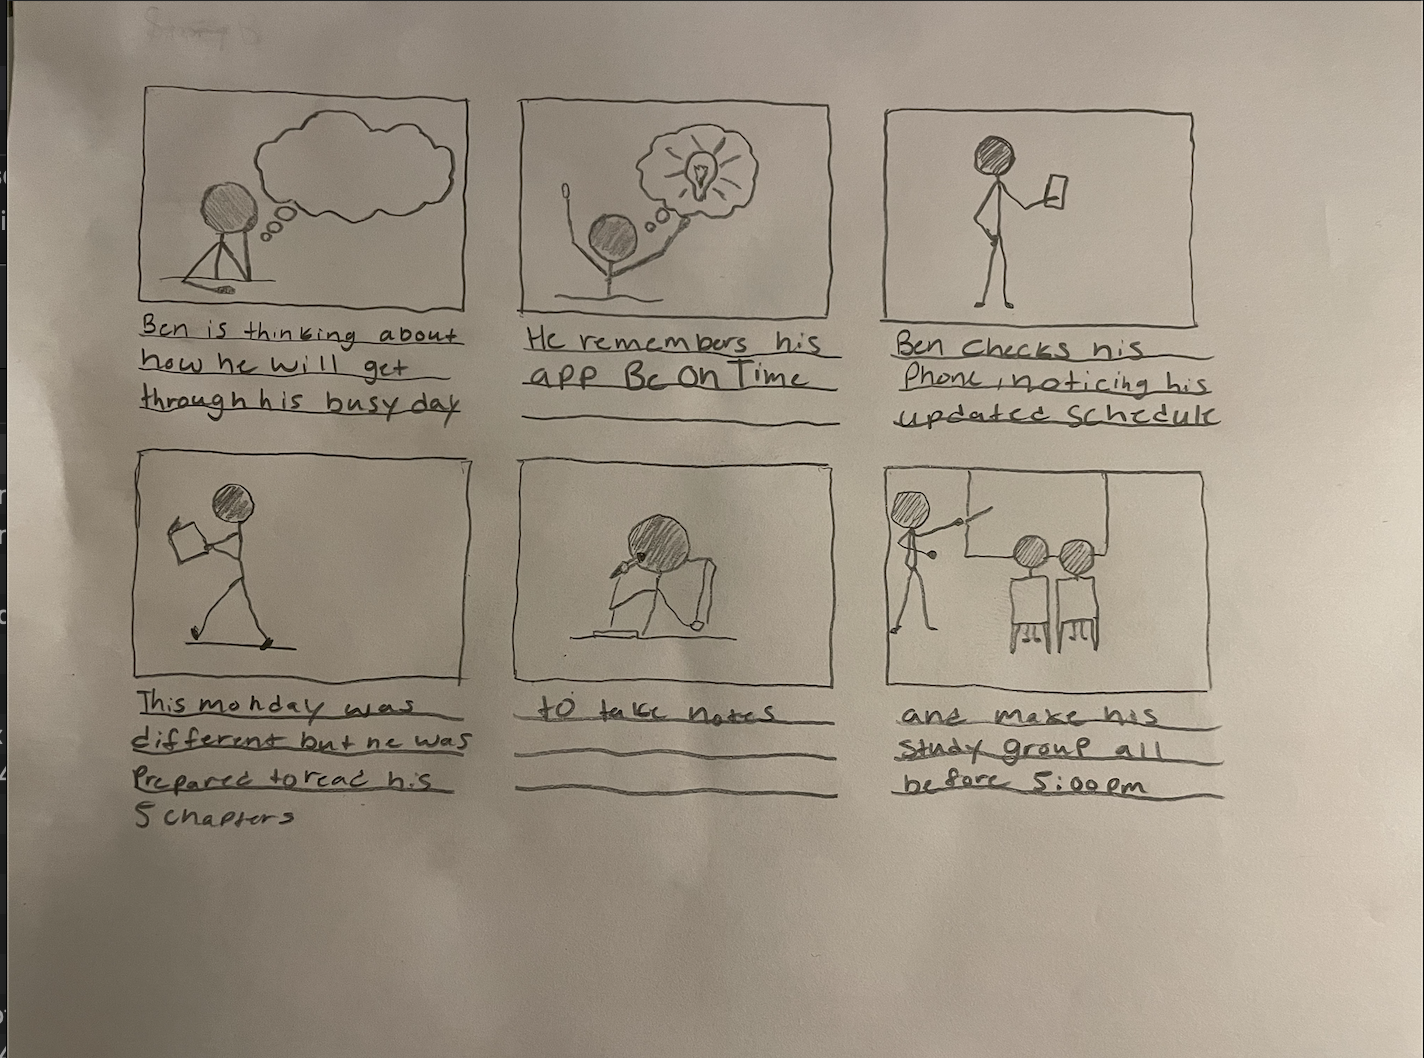 Ben is thinking about
how he will get
through his busy day
He remembers his
app Be On Time
Ben checks his
Phone, noticing his
updated schedule
This monday was
different but he was
Prepared to read his
5 chapters
to take notes
and make his
study group all
before 5:00pm